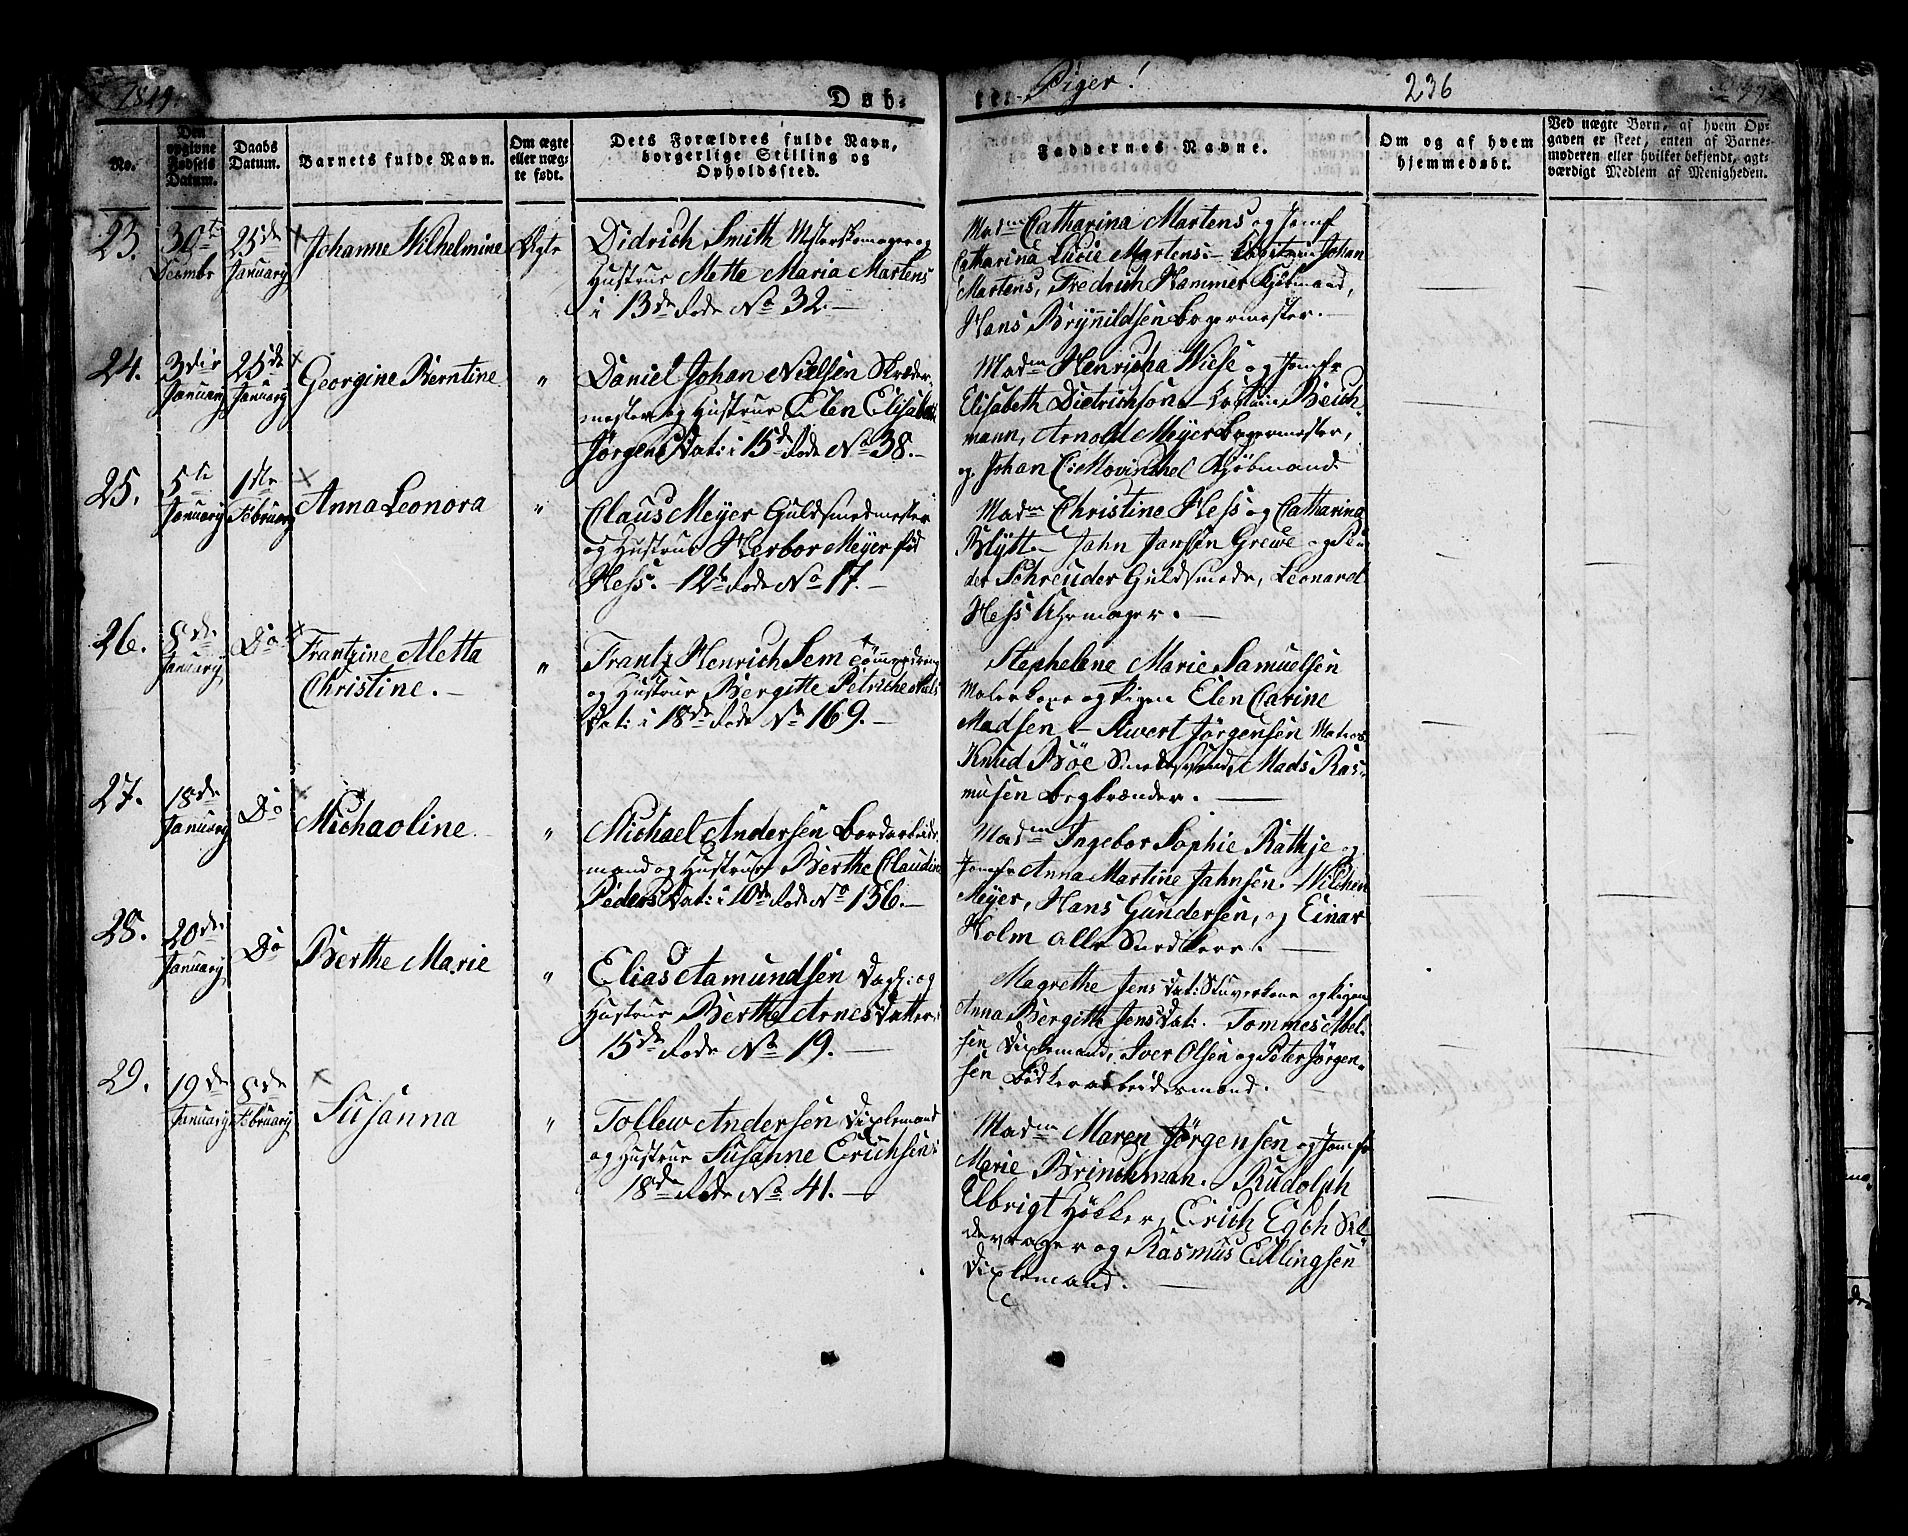 1819.
Døb-
te- Piger!
236
No.
Den opgivne Fødsels Datum.
Daabs Datum.
Barnets fulde Navn.
Om ægte eller nægte født.
Dets Forældres fulde Navn, borgerlige Stilling og Opholdssted.
Faddernes Navne.
Om og af hvem hjemmedøbt.
Ved nægte Børn, af hvem Opgaven er skeet, enten af Barnemoderen eller hvilket bekjendt, agtværdigt Medlem af Menigheden.
23.
30te Decembr
25de January
Johanne Wilhelmine
Ægte
Didrich Smith
og
Hustrue Mette Maria Martens
i 13de Rode No 32.
Madm Catharina Martens og Jomfr
Catharina Lucie Martens. - Johan
Martens, Fredrich Hammer Kjøbmand,
Hans Brynildsen Bagermester. -
24.
3die January
25de January
Georgine Berntine
"
Daniel Johan Nielsen Skræder-
mester og Hustrue Elen Elisabeth
Jørgens Dat: i 15de Rode No 38. -
Madm Henricha Wiese og Jomfr
Elisabeth Dietrichson - Beich-
mann, Arnold Meyer Bagermester,
og Johan C: Kjøbmand
25.
5te January
1ste February
Anna Leonora
"
Claus Meyer Guldsmedmester
og Hustrue Herbor Meyer fød
Hess. - 12te Rode No 17. -
Madm Christine Hess og Catharina
Blytt - Jahn Jansen Grewe og Pe-
der Schreuder Guldsmede, Leonard
Hess Uhrmager. -
26.
8de January
Do
Frantzine Aletta
Christine. -
"
Frantz Henrich Sem Tømmerdreng
og Hustrue Bergitte Petriche
Dat: i 18de Rode No 169. -
Stephelene Marie Samuelsen
og Pigen Elen Carine
Madsen - Siwert Jørgensen Matros
Knud Bøe Smedesvend, Mads Ras-
musen Begbrænder. -
27.
18de January
Do
Michaoline
"
Michael Andersen
mand og Hustrue Berthe Claudine
Peders Dat: i 10de Rode No 136. -
Madm Ingebor Sophie Rathje og
Jomfr Anna Martine Jahnsen. Wilchen
Meyer, Hans Gundersen, og Einar
Holm alle Snedkere. -
28.
20de January
Do
Berthe Marie
"
Elias Aamundsen Dagk: og
Hustrue Berthe Arnes Datter i
15de Rode No 19. -
Magrethe Jens Dat: Stuverkone og Pigen
Anna Bergitte Jens Dat: Tommes Abel-
sen Dixlemand, Iver Olsen og Peter Jørgen-
sen Bødkerarbeidsmænd.
29.
19de January
8de February
Susanna
"
Tollew Andersen Dixlemand
og Hustrue Susanne Erichsen i
18de Rode No 41. -
Madm Maren Jørgensen og Jomfr
Marie Brinchman. Rudolph
Elbrigt Høkker, Erich Egch
og Rasmus Ellingsen
Dixlemand.